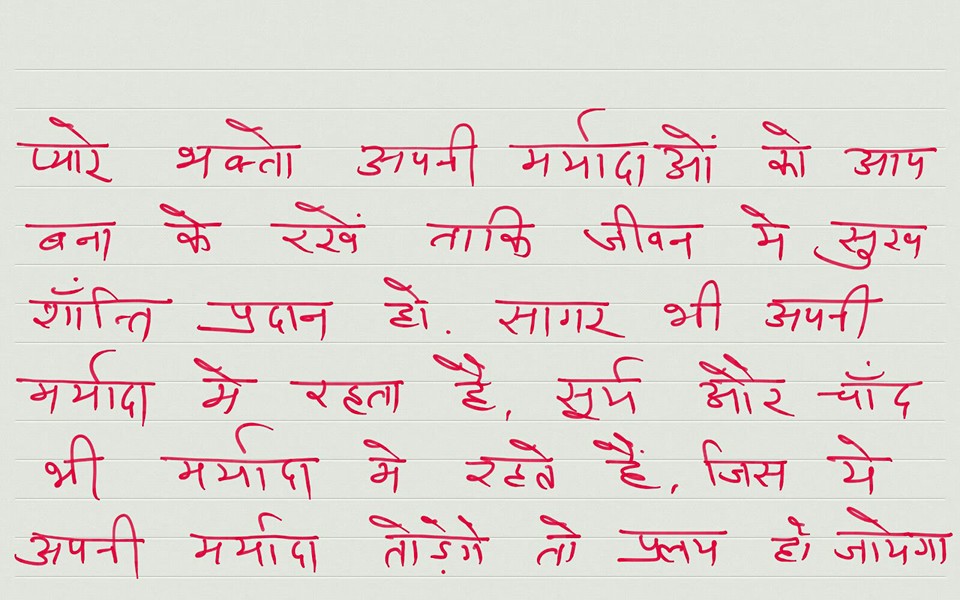 प्यारे भक्तो अपनी मर्यादाओं को आप
बना के रखें ताकि जीवन मे सुख
शाँन्ति प्रदान हो. सागर भी अपनी
मर्यादा मे रहता है, सूर्य और चाँद
भी मर्यादा मे रहते हैं, जिस ये
अपनी मर्यादा तोड़ेंगे तो प्रलय हो जायेगा